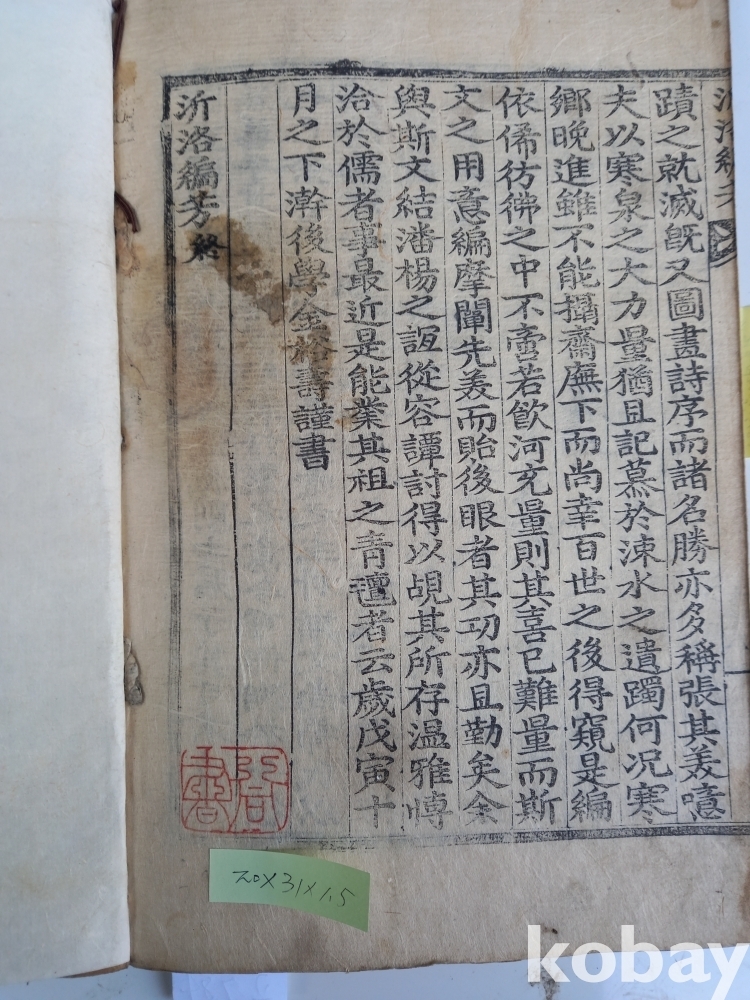 蹟之就滅旣又圖畫詩序而諸名勝亦多稱張其美噫
夫以寒泉之大力量猶且記慕於涑水之遺躅何况寒
鄉晚進雖不能攝齋廡下而尚幸百世之後得窺是編
依俙彷彿之中不啻若飮河充量則其喜已難量而斯
文之用意編摩闡先美而貽後眼者其功亦且勤矣余
與斯文結潘楊之誼從容譚討得以覘其所存温雅愽
洽於儒者事最近是能業其祖之青氊者云歲戊寅十
月之下澣後學金 壽謹書
沂洛編芳終
20X31X1.5
kobay